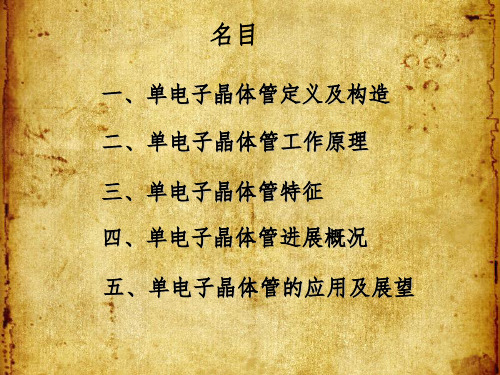 名目
一、单电子晶体管定义及构造
二、单电子晶体管工作原理
三、单电子晶体管特征
四、单电子晶体管进展概况
五、单电子晶体管的应用及展望